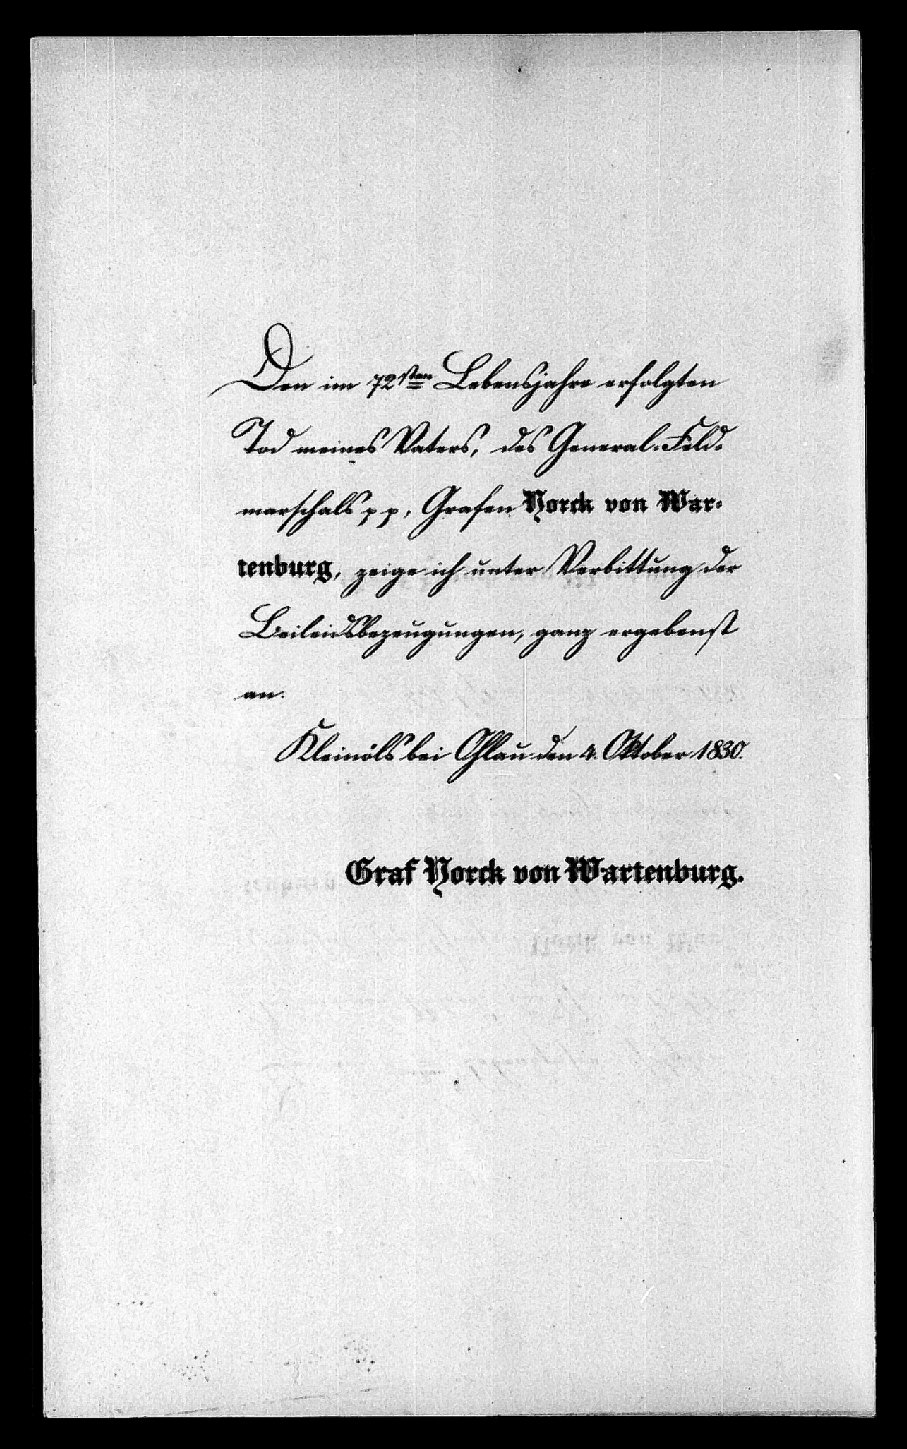 Den im 72sten Lebensjahre erfolgten
Tod meines Vaters, des General-Feld-
marschals pp, Grafen Yorck von War-
tenburg, zeige ich unter Verbittung der
Beileidsbezeugungen, ganz ergebenst
an.
Kleinöls bei Ohlau den 4. Oktober 1830.
Graf Yorck von Wartenburg.